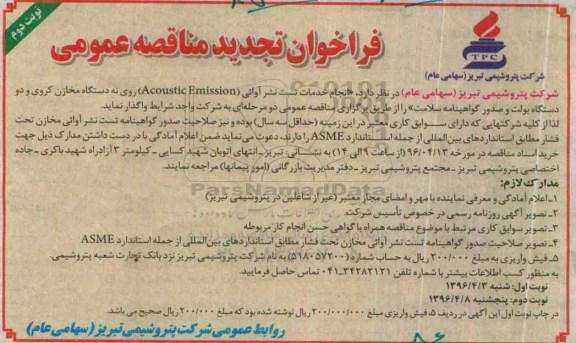 نوبت دوم
فراخوان تجدید مناقصه عمومی
TPC
شرکت پتروشیمی تبریز (سهامی عام)
شرکت پتروشیمی تبریز (سهامی عام) در نظر دارد، «انجام خدمات تست نشر آوائی (Acoustic Emission) روی نه دستگاه مخازن کروی و دو
دستگاه بولت و صدور گواهینامه سلامت» را از طریق برگزاری مناقصه عمومی دو مرحله‌ای به شرکت واجد شرایط واگذار نماید.
لذا از کلیه شرکتهایی که دارای سوابق کاری معتبر در این زمینه (حداقل سه سال) بوده و نیز صلاحیت صدور گواهینامه تست نشر آوائی مخازن تحت
فشار مطابق استانداردهای بین‌المللی از جمله استاندارد ASME را دارند، دعوت می‌نماید ضمن اعلام آمادگی با در دست داشتن مدارک ذیل جهت
خرید اسناد مناقصه در مورخه ۹۶/۰۴/۱۳ (از ساعت ۹ الی ۱۴) به نشانی: تبریز ـ انتهای اتوبان شهید کسایی ـ کیلومتر ۳ آزادراه شهید باکری ـ جاده
اختصاصی پتروشیمی تبریز ـ مجتمع پتروشیمی تبریز ـ دفتر مدیریت بازرگانی (امور پیمانها) مراجعه نمایند.
مدارک لازم:
۱ـ اعلام آمادگی و معرفی نماینده با مهر و امضای مجاز معتبر (غیر از شاغلین در پتروشیمی تبریز)
۲ـ تصویر آگهی روزنامه رسمی در خصوص تأسیس شرکت.
۳ـ تصویر سوابق کاری مرتبط با موضوع مناقصه همراه با گواهی حسن انجام کار مربوطه
۴ـ تصویر صلاحیت صدور گواهینامه تست نشر آوائی مخازن تحت فشار مطابق استانداردهای بین‌المللی از جمله استاندارد ASME
۵ـ فیش واریزی به مبلغ ۲۰۰/۰۰۰ ریال به حساب شماره (۵۱۸۰۵۷۲۰۰) به نام شرکت پتروشیمی تبریز نزد بانک تجارت شعبه پتروشیمی.
به منظور کسب اطلاعات بیشتر با شماره تلفن ۳۴۲۸۲۱۲۱ـ۰۴۱ تماس حاصل فرمایید.
نوبت اول: شنبه ۱۳۹۶/۴/۳
نوبت دوم: پنجشنبه ۱۳۹۶/۴/۸
در چاپ نوبت اول این آگهی در ردیف ۵، فیش واریزی مبلغ ۲۰۰/۰۰۰/۰۰۰ ریال نوشته شده بود که مبلغ ۲۰۰/۰۰۰ ریال صحیح می باشد.
روابط عمومی شرکت پتروشیمی تبریز (سهامی عام)
ParsNamadData